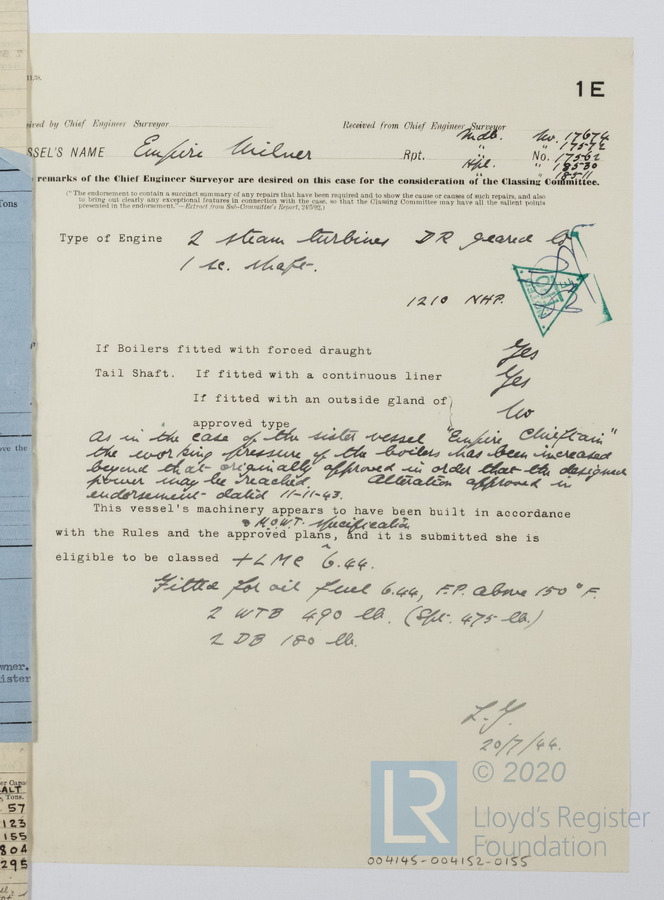 11.38.
1E
ived by Chief Engineer Surveyor
Received from Chief Engineer Surveyor
SSEL'S NAME Empire Milner Rpt. Mdb. No. 17674
" " 17572
No. 17562
Hpl. " 18530
" " 18511
remarks of the Chief Engineer Surveyor are desired on this case for the consideration of the Classing Committee.
("The endorsement to contain a succinct summary of any repairs that have been required and to show the cause or causes of such repairs, and also
to bring out clearly any exceptional features in connection with the case, so that the Classing Committee may have all the salient points
presented in the endorsement."—Extract from Sub-Committee's Report, 24/5/92.)
Type of Engine 2 steam turbines DR geared to
1 sc. shaft.
1210 NHP.
If Boilers fitted with forced draught Yes
Tail Shaft. If fitted with a continuous liner Yes
If fitted with an outside gland of
approved type No
As in the case of the sister vessel "Empire Chieftain"
the working pressure of the boilers has been increased
beyond that originally approved in order that the designed
power may be reached. Alteration approved in
endorsement dated 11-11-43.
This vessel's machinery appears to have been built in accordance
& M.O.W.T. specification
with the Rules and the approved plans, and it is submitted she is
eligible to be classed +LMC 6.44.
Fitted for oil fuel 6.44, F.P. above 150°F.
2 WTB 490 lb. (Spt. 475 lb.)
2 DB 180 lb.
20/7/44.
Tons
ve the
wner.
ister
er Capa
ALT
Tons.
57
123
155
804
295
LR
© 2020
Lloyd's Register
Foundation
004145-004152-0155